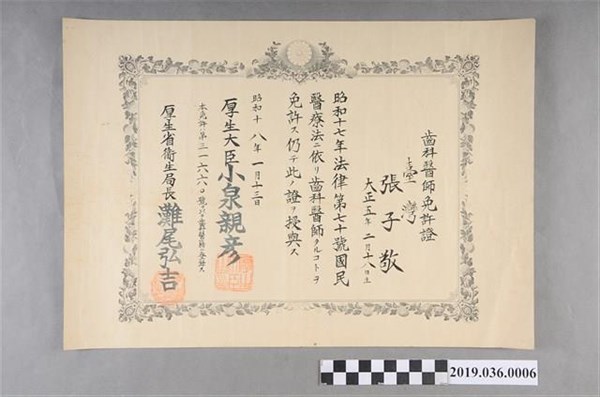 齒科醫師免許證
臺灣
張子敬
大正五年二月十八日生
昭和十七年法律第七十號國民
醫療法ニ依リ齒科醫師タルコトヲ
免許ス仍テ此ノ證ヲ授與ス
昭和十八年一月十三日
厚生大臣小泉親彦
本免許第三一六六八號ヲ以テ齒科醫籍ニ登錄ス
厚生省衛生局長灘尾弘吉
2019.036.0006